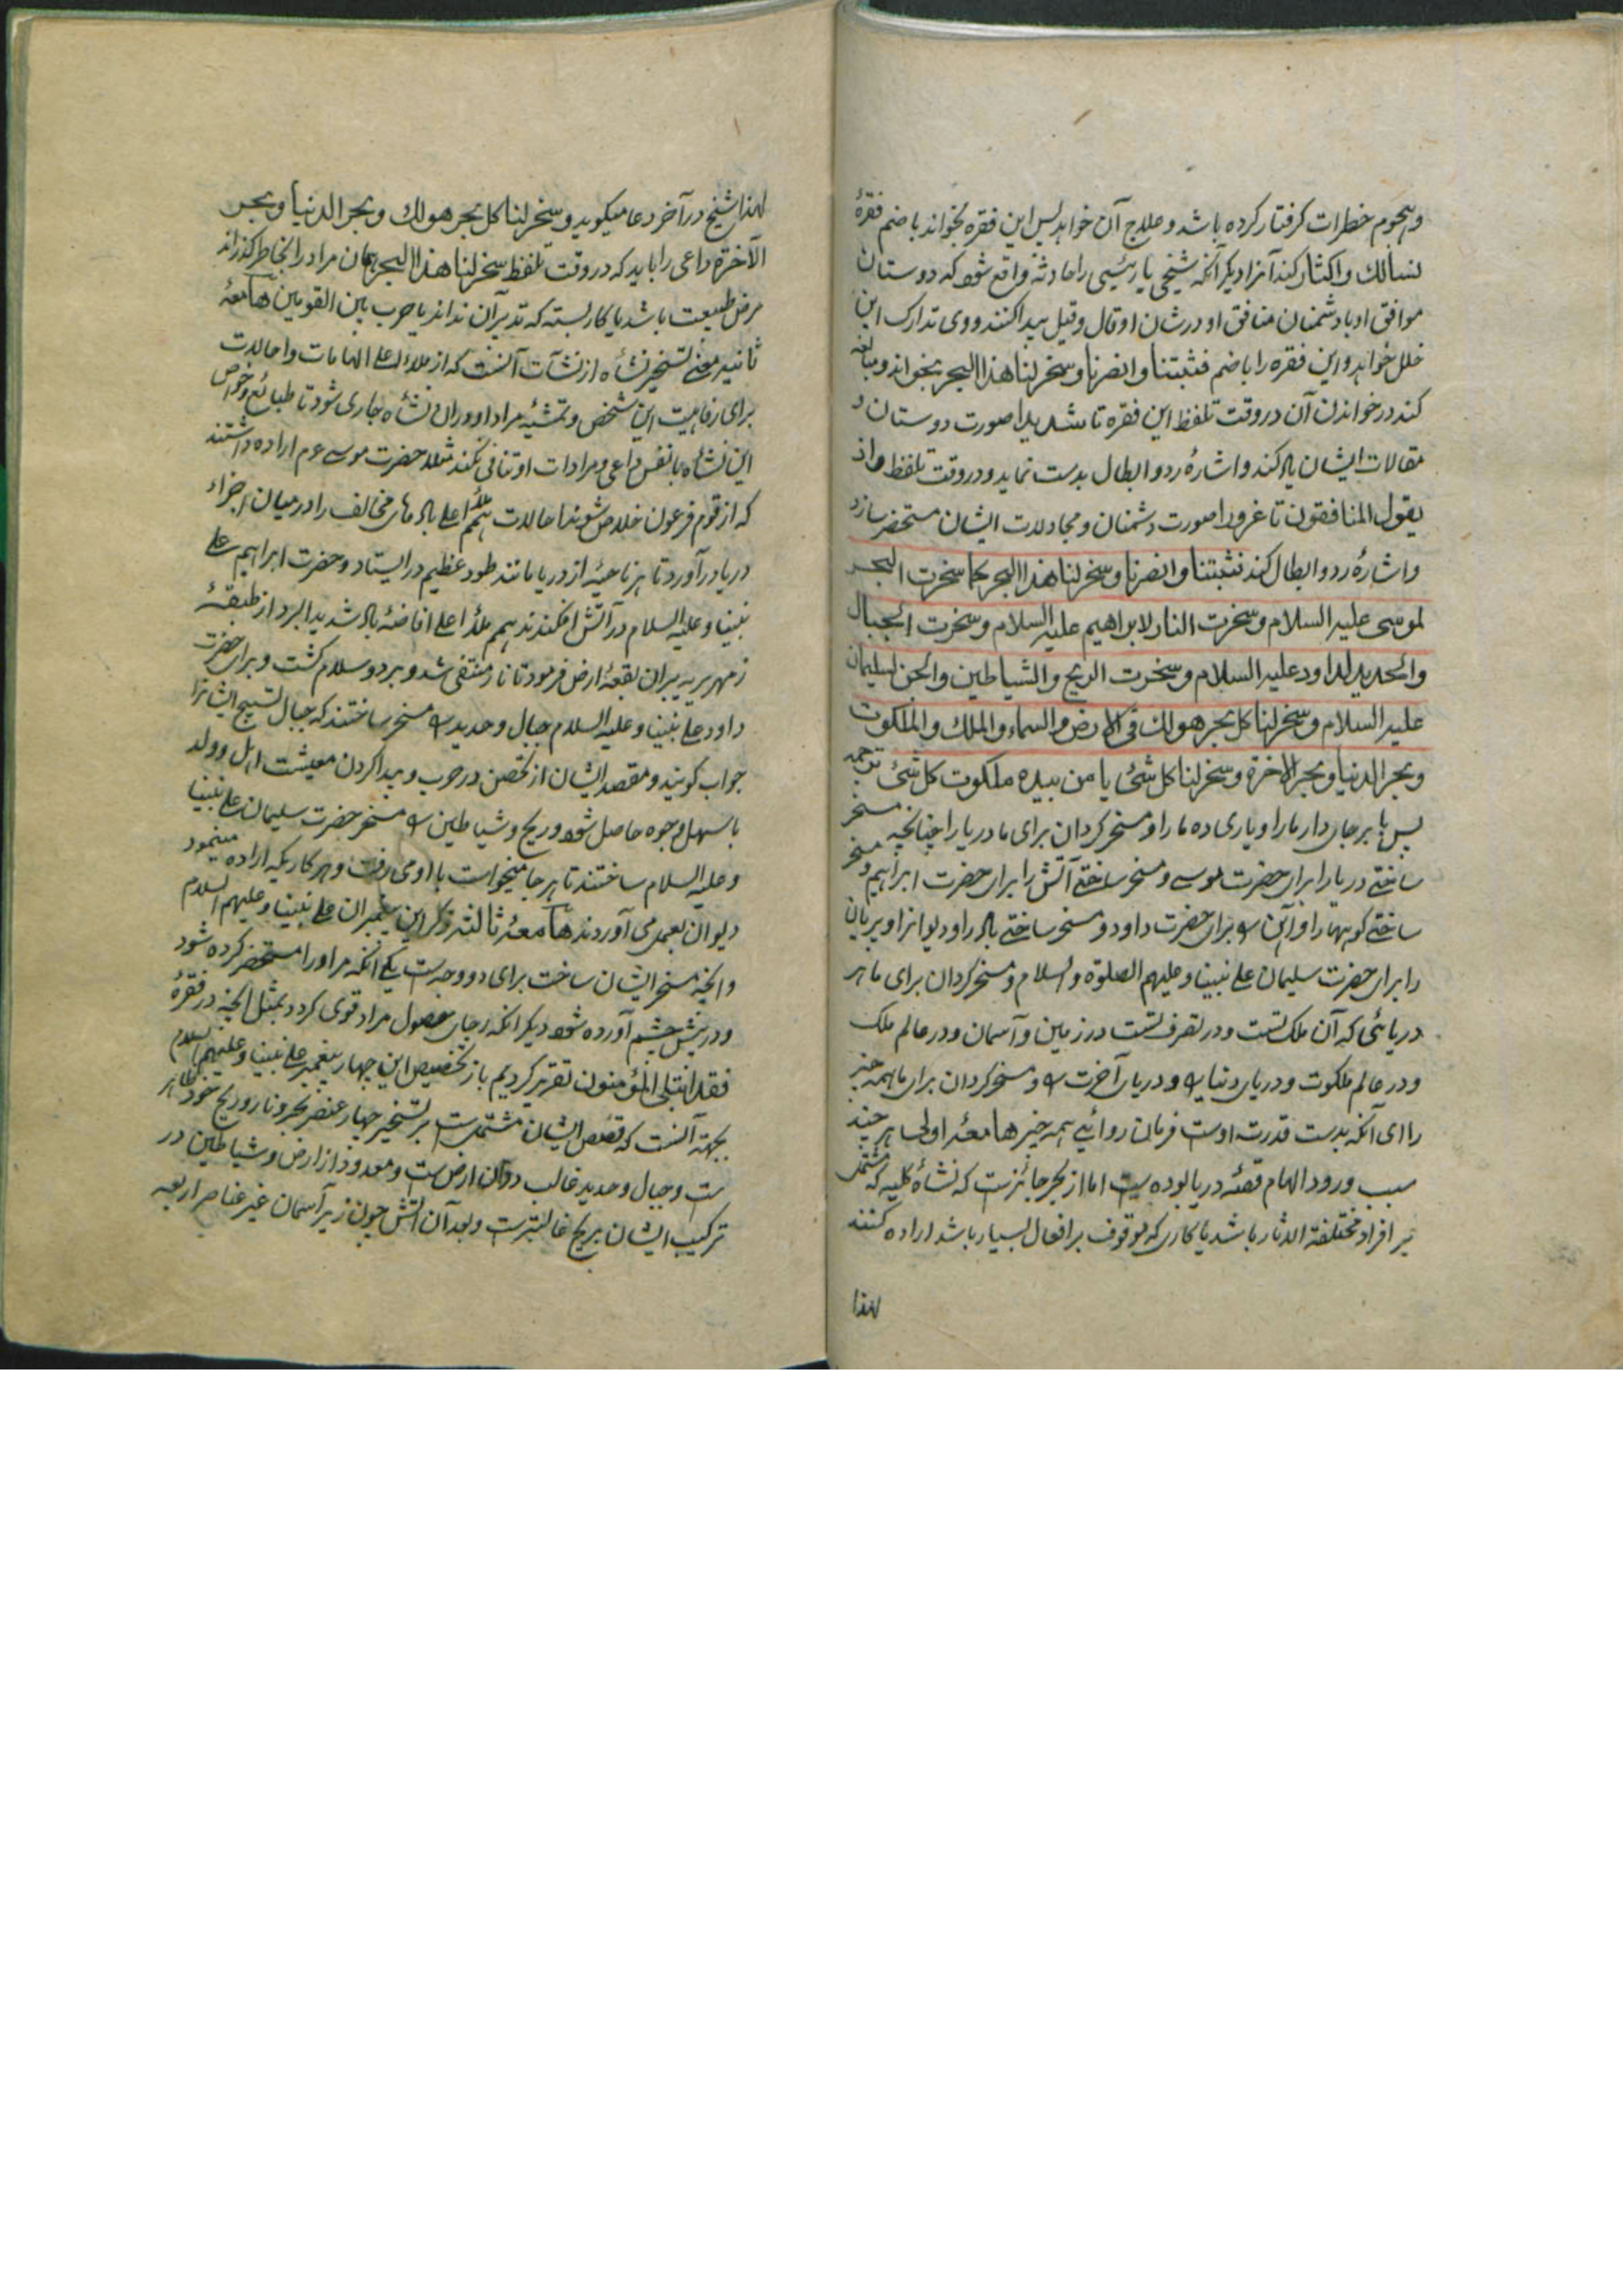 وهجوم خطرات کرفتار کرده باشد و علاج آن خواهد پس این فقره بخواند با ضم فقرهٔ
نسألك واکثار کند آنرا دیکر آنکه شیخی یا رئیسی را حادثه واقع شود که دوستان
موافق او با دشمنان منافق او درشان او قال وقیل پیدا کنند و وی تدارک این
خلل خواهد و این فقره را با ضم فثبتنا وانصرنا وسخر لنا هذا البحر بخواند و مبالغه
کند در خواندن آن در وقت تلفظ این فقره تا شدیدا صورت دوستان و
مقالات ایشان یاد کند و اشارهٔ رد و ابطال بدست نماید و در وقت تلفظ واذ
یقول المنافقون تا غرورا صورت دشمنان و مجادلات ایشان مستحضر سازد
و اشارهٔ رد و ابطال کند فثبتنا وانصرنا وسخر لنا هذا البحر کما سخرت البحر
لموسی علیه السلام وسخرت النار لابراهیم علیه السلام وسخرت الجبال
والحدید لداود علیه السلام وسخرت الریح والشیاطین والجن لسلیمان
علیه السلام وسخر لنا کل بحر هو لك فی الارض والسماء والملك والملکوت
وبحر الدنیا وبحر الاخرة وسخر لنا کل شئ یا من بیده ملکوت کل شئ ترجمه
پس پا برجای دار مارا و یاری ده مارا و مسخر کردان برای ما دریا را چنانچه مسخر
ساختی دریا را برای حضرت موسی و مسخر ساختی آتش را برای حضرت ابراهیم و مسخر
ساختی کوهها را و آهن را برای حضرت داود و مسخر ساختی باد را و دیوانرا و پریان
را برای حضرت سلیمان علی نبینا وعلیهم الصلوة والسلام و مسخر کردان برای ما هر
دریائی که آن ملک تست و در تصرف تست در زمین و آسمان و در عالم ملک
و در عالم ملکوت و دریای دنیا را و دریای آخرت را و مسخر کردان برای ما همه چیز
را ای آنکه بدست قدرت اوست فرمان روائی همه چیز هامعهٔ اولی هر چند
سبب ورود الهام قصهٔ دریا بوده است اما از بحر جائزست که نشأهٔ کلیه که مشتمل
بر افراد مختلفة الاثار باشد یا کاری که موقوف بر افعال بسیار باشد اراده کنند
لهذا
لهذا شیخ در آخر دعا میکوید وسخر لنا کل بحر هو لك وبحر الدنیا وبحر
الآخرة داعی را باید که در وقت تلفظ سخر لنا هذا البحر همان مراد را بخاطر کذراند
مرض طبیعت باشد یا کار بسته که تدبیر آن نداند یا حرب بین القومین هامعهٔ
ثانیه معنی تسخیر نشأه از نشآت آنست که از ملاء اعلی الهامات و احالات
برای رفاهیت این شخص و تمشیهٔ مراد او دران نشأه جاری شود تا طبائع و خواص
این نشأه با نفس داعی و مرادات او تنافی نکند مثلا حضرت موسی ع م اراده داشتند
که از قوم فرعون خلاص شوند احالات همم ملاء اعلی باد های مخالف را درمیان اجزاء
دریا در آورد تا هر ناحیهٔ از دریا مانند طود عظیم در ایستاد و حضرت ابراهیم علی
نبینا وعلیه السلام در آتش افکندند همم ملاء اعلی افاضهٔ باد شدید البرد از طبقهٔ
زمهریریه بران بقعهٔ ارض فرمود تا نار منتفی شد و برد و سلام کشت و برای حضرت
داود علی نبینا وعلیه السلام جبال و حدید را مسخر ساختند که جبال تسبیح ایشانرا
جواب کویند و مقصد ایشان از تحصن در حرب و پیدا کردن معیشت اهل و ولد
باسهل وجوه حاصل شود و ریح و شیاطین را مسخر حضرت سلیمان علی نبینا
وعلیه السلام ساختند تا هر جا میخواست با او می رفت و هر کاریکه اراده مینمود
دیوان بعمل می آوردند هامعهٔ ثالثه ذکر این پیغمبران علی نبینا وعلیهم السلام
و آنچه مسخر ایشان ساخت برای دو وجه است یکی آنکه مراد را مستحضر کرده شود
و در پیش چشم آورده شود دیکر آنکه رجای حصول مراد قوی کردد بمثل آنچه در فقرهٔ
فقد ابتلی المؤمنون تقریر کردیم باز تخصیص این چهار پیغمبر علی نبینا وعلیهم السلام
بجهة آنست که قصص ایشان مشتمل است بر تسخیر چهار عنصر بحر و نار و ریح خود ظاهر
ست و جبال و حدید غالب دران ارض ست و معدود از ارض و شیاطین در
ترکیب ایشان ریح غالبترست و بعد آن آتش چون زیر آسمان غیر عناصر اربعه